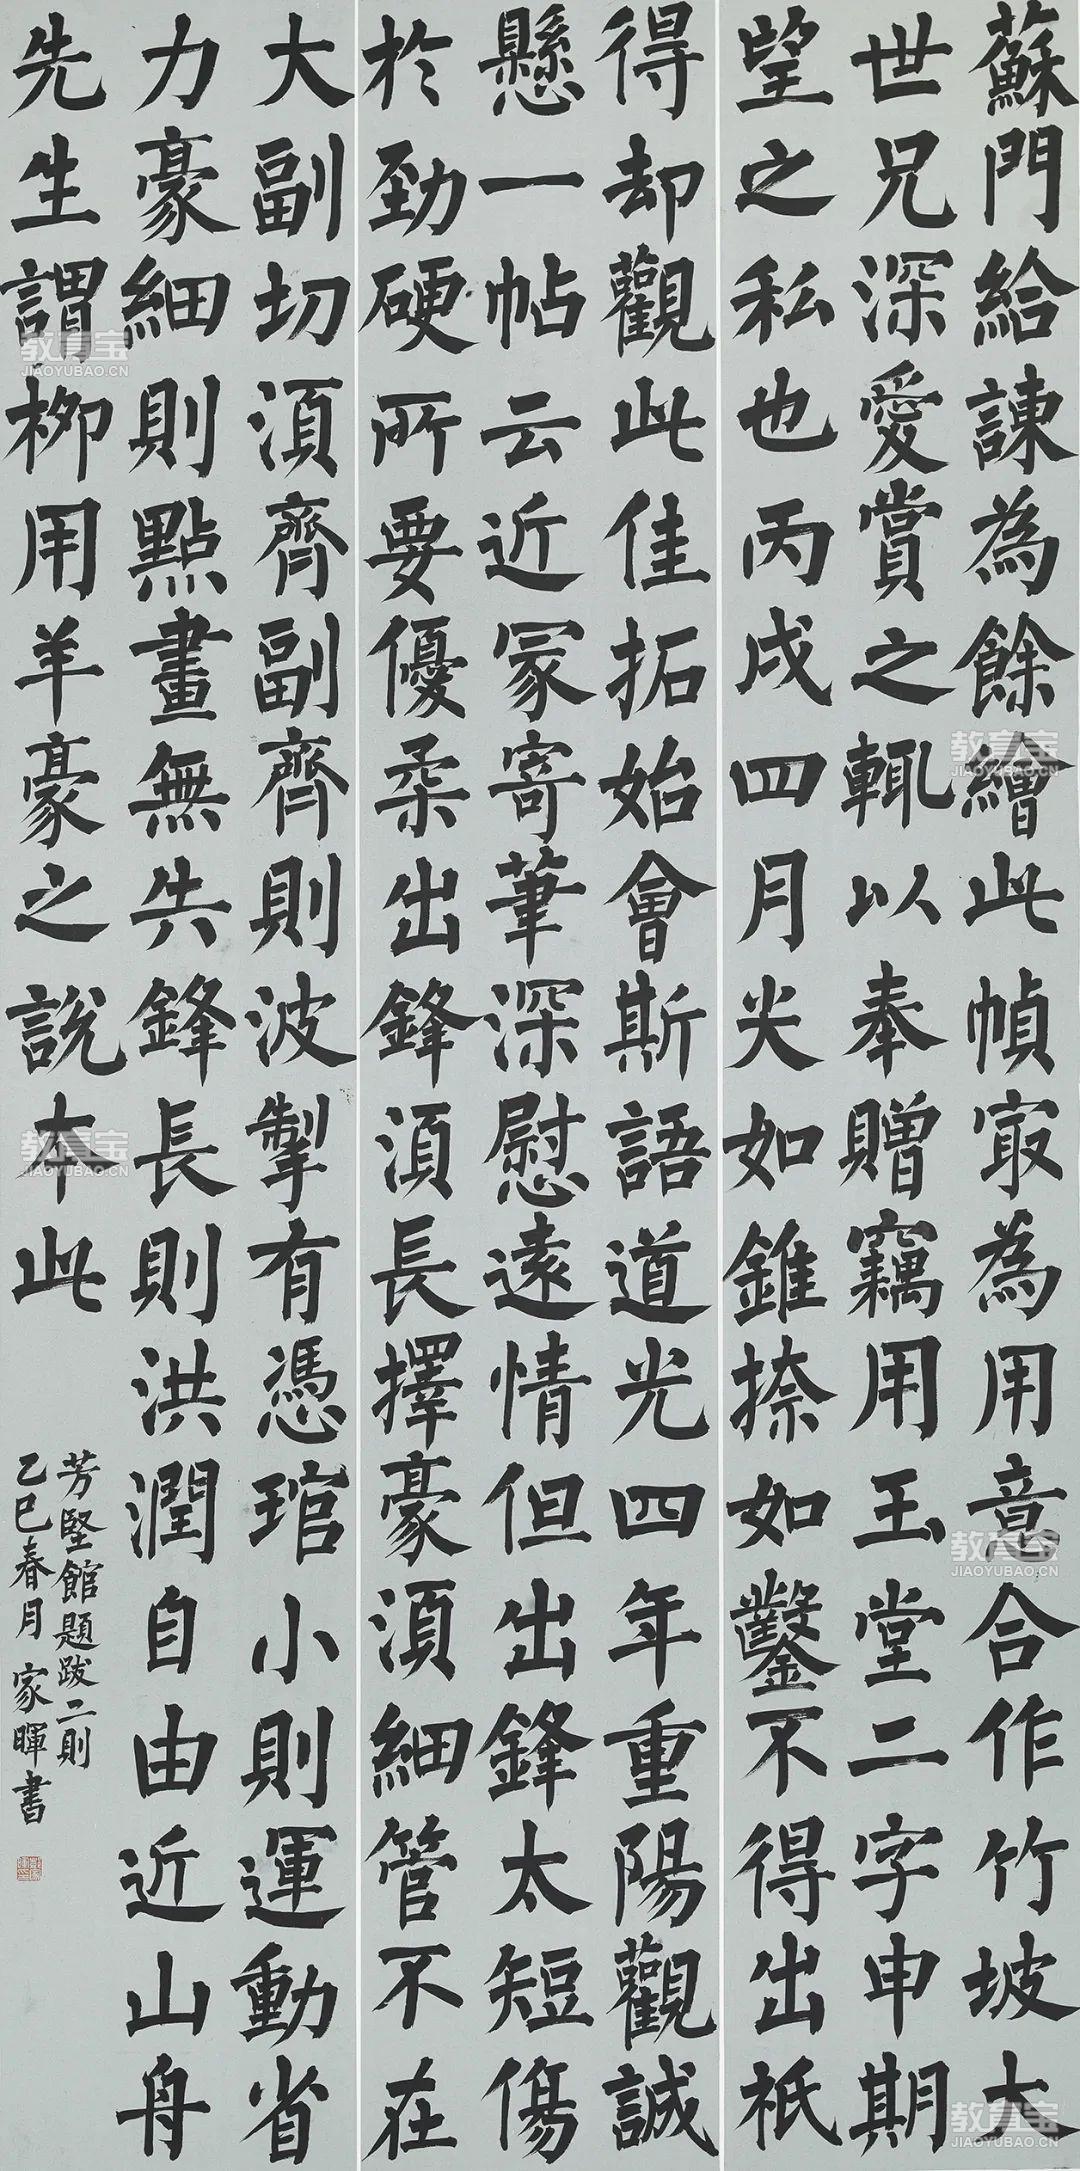 蘇門給諫為餘繪此幀㝡為用意合作竹坡大
世兄深愛賞之輒以奉贈竊用玉堂二字申期
望之私也丙戌四月尖如錐捺如鑿不得出祇
得却觀此佳拓始會斯語道光四年重陽觀誠
懸一帖云近冡寄筆深慰遠情但出鋒太短傷
於勁硬所要優柔出鋒湏長擇豪湏細管不在
大副切湏齊副齊則波掣有慿琯小則運動省
力豪細則點畫無失鋒長則洪潤自由近山舟
先生謂柳用羊豪之說本此
芳堅館題跋二則
乙巳春月 家暉書
教育宝
JIAOYUBAO.CN
教育宝
JIAOYUBAO.CN
教育宝
JIAOYUBAO.CN
教育宝
JIAOYUBAO.CN
教育宝
JIAOYUBAO.CN